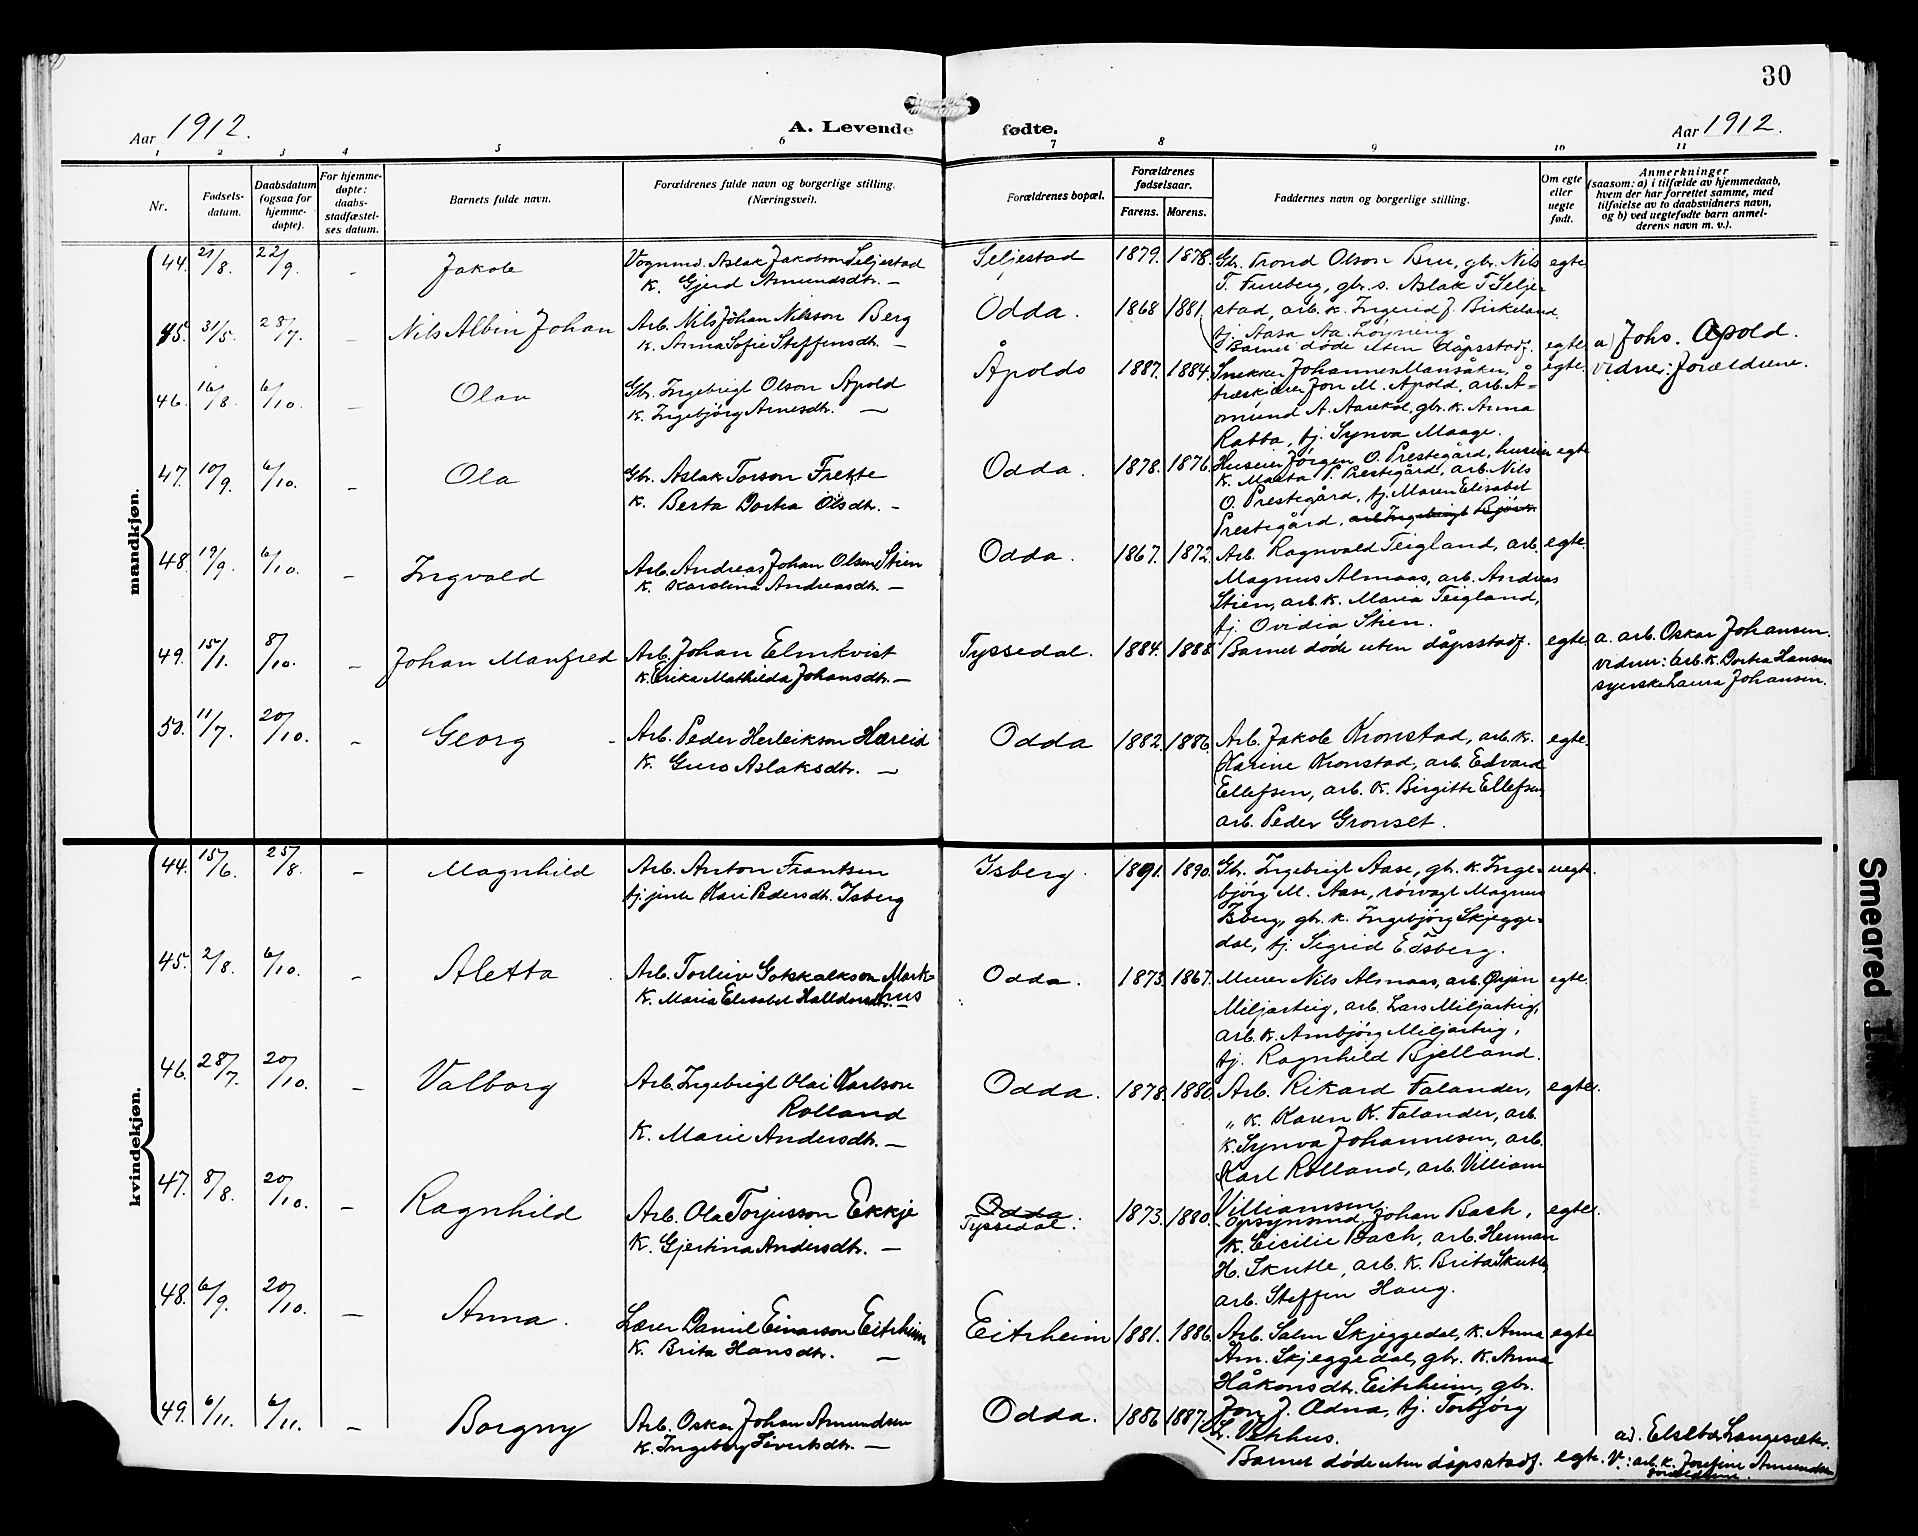 30
Aar 1912.
A. Levende fødte.
Aar 1912.
1 2 3 4 5 6 7 8 9 10 11
Nr.
Fødsels-
datum.
Daabsdatum
(ogsaa for
hjemme-
døpte).
For hjemme-
døpte:
daabs-
stadfæstel-
ses datum.
Barnets fulde navn.
Forældrenes fulde navn og borgerlige stilling.
(Næringsvei).
Forældrenes bopæl.
Forældrenes
fødselsaar.
Farens. Morens.
Faddernes navn og borgerlige stilling.
Om egte
eller
uegte
født.
Anmerkninger
(saasom: a) i tilfælde av hjemmedaab,
hvem der har forrettet samme, med
tilføielse av to daabsvidners navn,
og b) ved uegtefødte barn anmel-
derens navn m. v.).
mandkjøn.
44. 21/8. 22/9. - Jakob
Vognmd. Aslak Jakobson Seljestad
K. Gjerd Amundsdtr. —
Seljestad 1879. 1878.
Gbr. Trond Olson Bru, gbr. Nils
T. Fureberg, gbr. s. Aslak T Selje-
stad, arb. k. Ingerid J. Birkeland
tj. Aasa Aa. Løyning
egte
45. 31/5. 28/7. - Nils Albin Johan
Arb. Nils Johan Nilsson Berg
K. Anna Sofie Steffensdtr. —
Odda. 1868 1881.
Barnet døde uten dåpsstadf. egte
a) Johs. Apold.
vidner: Forældrene.
46. 16/8. 6/10. - Olav
Gbr. Ingebrigt Olson Apold
K. Ingebjörg Arnesdtr. —
Åpoldo 1887. 1884.
Snekker Johannes Mansåker,
træskjærer Jon M. Apold, arb. Å-
mund A. Aarekol, gbr. k. Anna
Rabba, tj. Synva Maage.
egte.
47. 10/9. 6/10. - Ola
Gbr. Aslak Torson Frette
K. Berta Dortea Olsdtr. —
Odda. 1878. 1876.
Huseier Jörgen O. Prestegård, huseier
K. Marta P. Prestegård, arb. Nils
O. Prestegård, tj. Maren Elisabet
Prestegård, arb. Ingebrigt Björk
egte
48. 19/9. 6/10. - Ingvald
Arb. Andreas Johan Olsen Stien
K. Karolina Andreasdtr. —
Odda. 1867. 1872.
Arb. Ragnvald Teigland, arb.
Magnus Almaas, arb. Andreas
Stien, arb. k. Maria Teigland,
tj. Ovidia Stien.
egte.
49. 15/1. 8/10. - Johan Manfred
Arb. Johan Elmkvist
K. Erika Mathilda Johansdtr. —
Tyssedal. 1884. 1888.
Barnet døde uten dåpsstadf. egte.
a. arb. Oskar Johansen.
vidner: arb. k. Dortea Hansen
syerske Laura Johansen.
50. 11/7. 20/10. - Georg
Arb. Peder Herleikson Hæreid
K. Guro Aslaksdtr. —
Odda 1882. 1886.
Arb. Jakob Kronstad, arb. k.
Karine Kronstad, arb. Edvard
Ellefsen, arb. K. Birgitte Ellefsen,
arb. Peder Gronset.
egte.
kvindekjøn.
44. 15/6. 25/8. - Magnhild
Arb. Anton Frantsen
tj. jente Kari Pedersdtr. Isberg
Isberg. 1891. 1890.
Gbr. Ingebrigt Aase, gbr. k. Inge-
björg M. Aase, rörvagt Magnus
Isberg, gbr. k. Ingebjörg Skjegge-
dal, tj. Sigrid Edsberg.
uegte.
45. 2/8. 6/10. - Aletta
Arb. Torleiv Gotskalkson Mark-
hus
K. Maria Elisabet Halldorsdtr. —
Odda. 1873. 1867.
Murer Nils Almaas, arb. Örjan
Miljarteig, arb. Lars Miljarteig,
arb. k. Ambjörg Miljarteig,
tj. Ragnhild Bjelland.
egte.
46. 28/7. 20/10. - Valborg
Arb. Ingebrigt Olai Karlson
Rolland
K. Marie Andersdtr. —
Odda. 1878. 1880.
Arb. Rikard Falander,
„ K. Karen K. Falander, arb.
K. Synva Johannesen, arb.
Karl Rolland, arb. Villiam
Villiamsen
egte.
47. 8/8. 20/10. - Ragnhild
Arb. Ola Torjusson Ekkje
K. Gjertina Andersdtr. —
Odda
Tyssedal. 1873. 1880.
Opsynsmd. Johan Bach,
K. Cicilie Bach, arb. Herman
H. Skutle, arb. K. Brita Skutle,
arb. Steffen Haug.
egte.
48. 6/9. 20/10. - Anna.
Lærer Daniel Einarson Eitrheim
K. Brita Hansdtr. —
Eitrheim 1881. 1886.
Arb. Salm Skjeggedal, K. Anna
Am. Skjeggedal, gbr. K. Anna
Håkonsdtr. Eitrheim, gbr.
Jon J. Ædna, tj. Torbjörg
L. Vethus.
egte
49. 6/11. 6/11. - Borgny
Arb. Oskar Johan Amundsen
K. Ingeborg Sivertsdtr. —
Odda. 1886 1887.
Barnet døde uten dåpsstadf. egte.
ad. Elsebe Langesæter.
V.: arb. k. Josefine Amundsen
forældrene.
Smeared